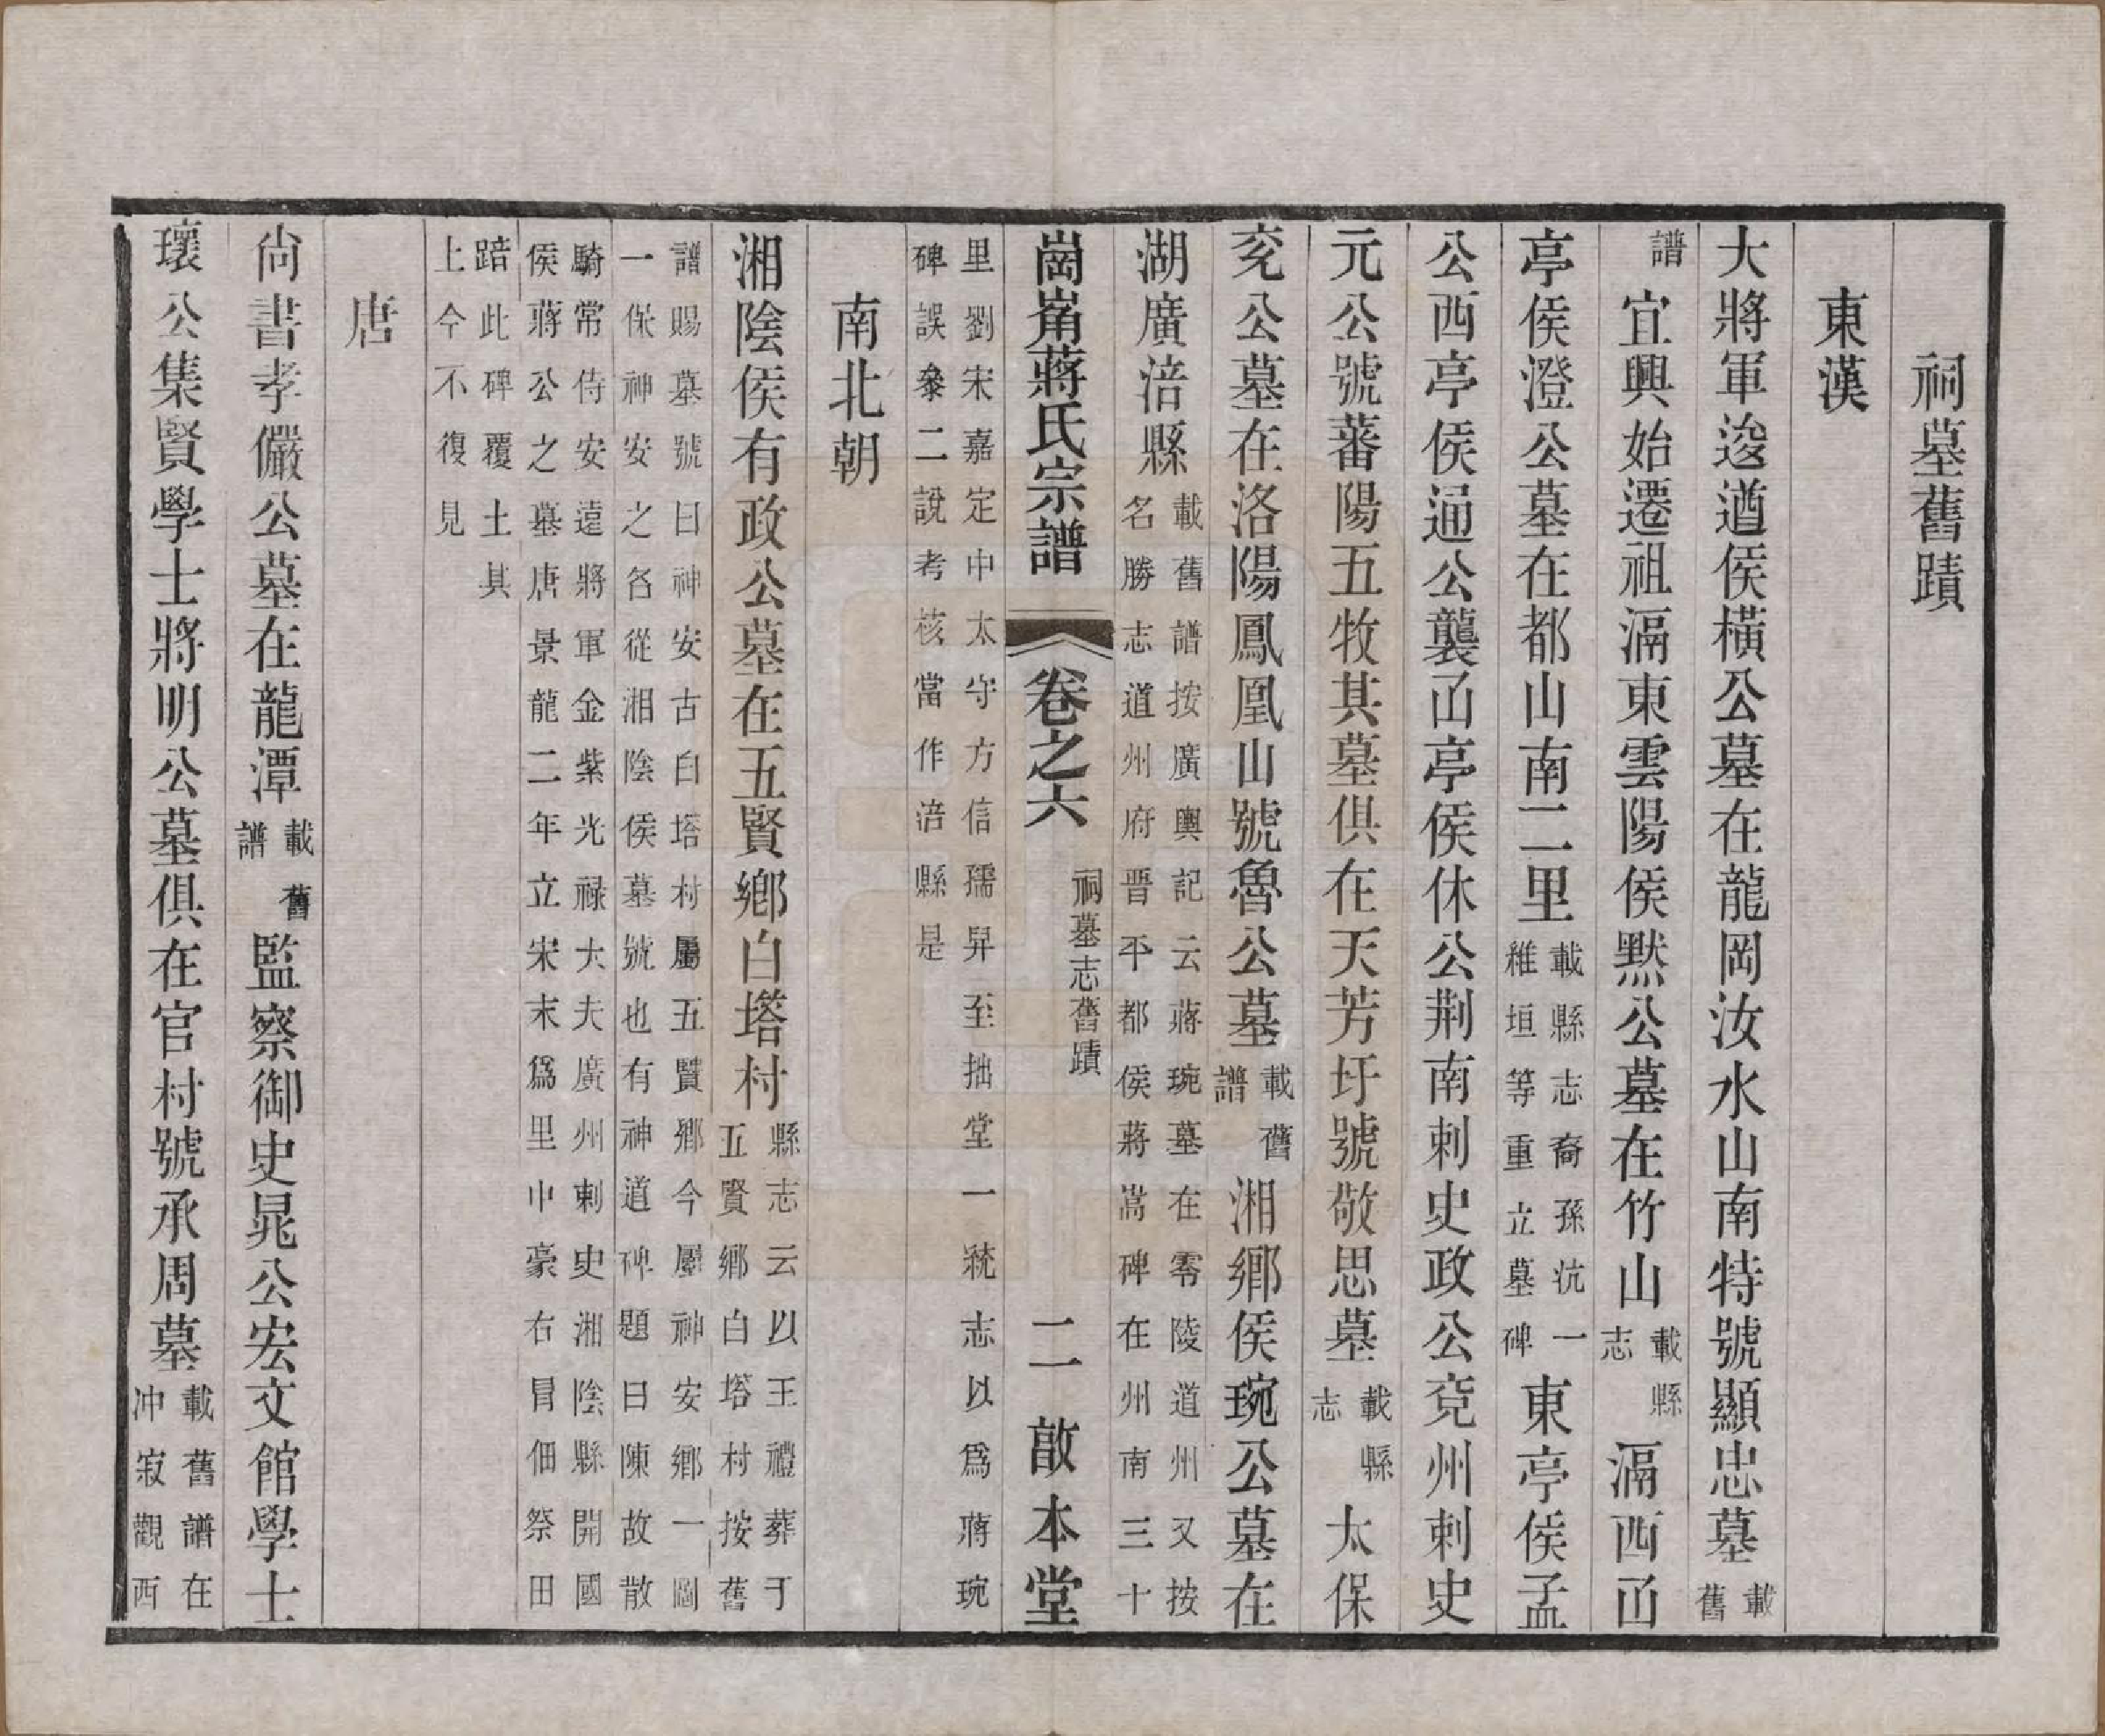 祠墓舊蹟
東漢
大將軍逡遒侯橫公墓在龍岡汝水山南特號顯忠墓載舊
譜宜興始遷祖滆東雲陽侯默公墓在竹山載縣志滆西㓊
亭侯澄公墓在都山南二里載縣志裔孫沆一維垣等重立墓碑東亭侯孟
公西亭侯通公襲㓊亭侯休公荆南刺史政公兗州刺史
元公號蕃陽五牧其墓俱在天芳圩號敬思墓載縣志太保
兗公墓在洛陽鳳凰山號魯公墓載舊譜湘鄉侯琬公墓在
湖廣涪縣載舊譜按廣輿記云蔣琬墓在零陵道州又按名勝志道州府晋平都侯蔣嵩碑在州南三十
崗崤蔣氏宗譜 卷之六 祠墓志舊蹟 二 敃本堂
里劉宋嘉定中太守方信孺舁至拙堂一統志以爲蔣琬碑誤叅二說考核當作涪縣是
南北朝
湘陰侯有政公墓在五賢鄉白塔村縣志云以王禮葬于五賢鄉白塔村按舊
譜賜墓號曰神安古白塔村屬五賢鄉今屬神安鄉一圖一保神安之名從湘陰侯墓號也有神道碑題曰陳故散
騎常侍安遠將軍金紫光祿大夫廣州刺史湘陰縣開國侯蔣公之墓唐景龍二年立宋末爲里中豪右冒佃祭田
踣此碑覆土其上今不復見
唐
尙書孝儼公墓在龍潭載舊譜監察御史晁公宏文館學士
瓌公集賢學士將明公墓俱在官村號承周墓載舊譜在冲寂觀西